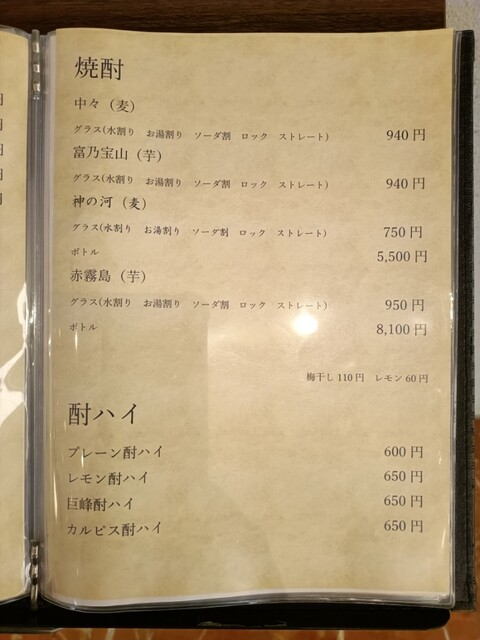 焼酎
中々（麦）
グラス(水割り　お湯割り　ソーダ割　ロック　ストレート)　940円
富乃宝山（芋）
グラス(水割り　お湯割り　ソーダ割　ロック　ストレート)　940円
神の河（麦）
グラス(水割り　お湯割り　ソーダ割　ロック　ストレート)　750円
ボトル　5,500円
赤霧島（芋）
グラス(水割り　お湯割り　ソーダ割　ロック　ストレート)　950円
ボトル　8,100円
梅干し110円　レモン60円
酎ハイ
プレーン酎ハイ　600円
レモン酎ハイ　650円
巨峰酎ハイ　650円
カルピス酎ハイ　650円